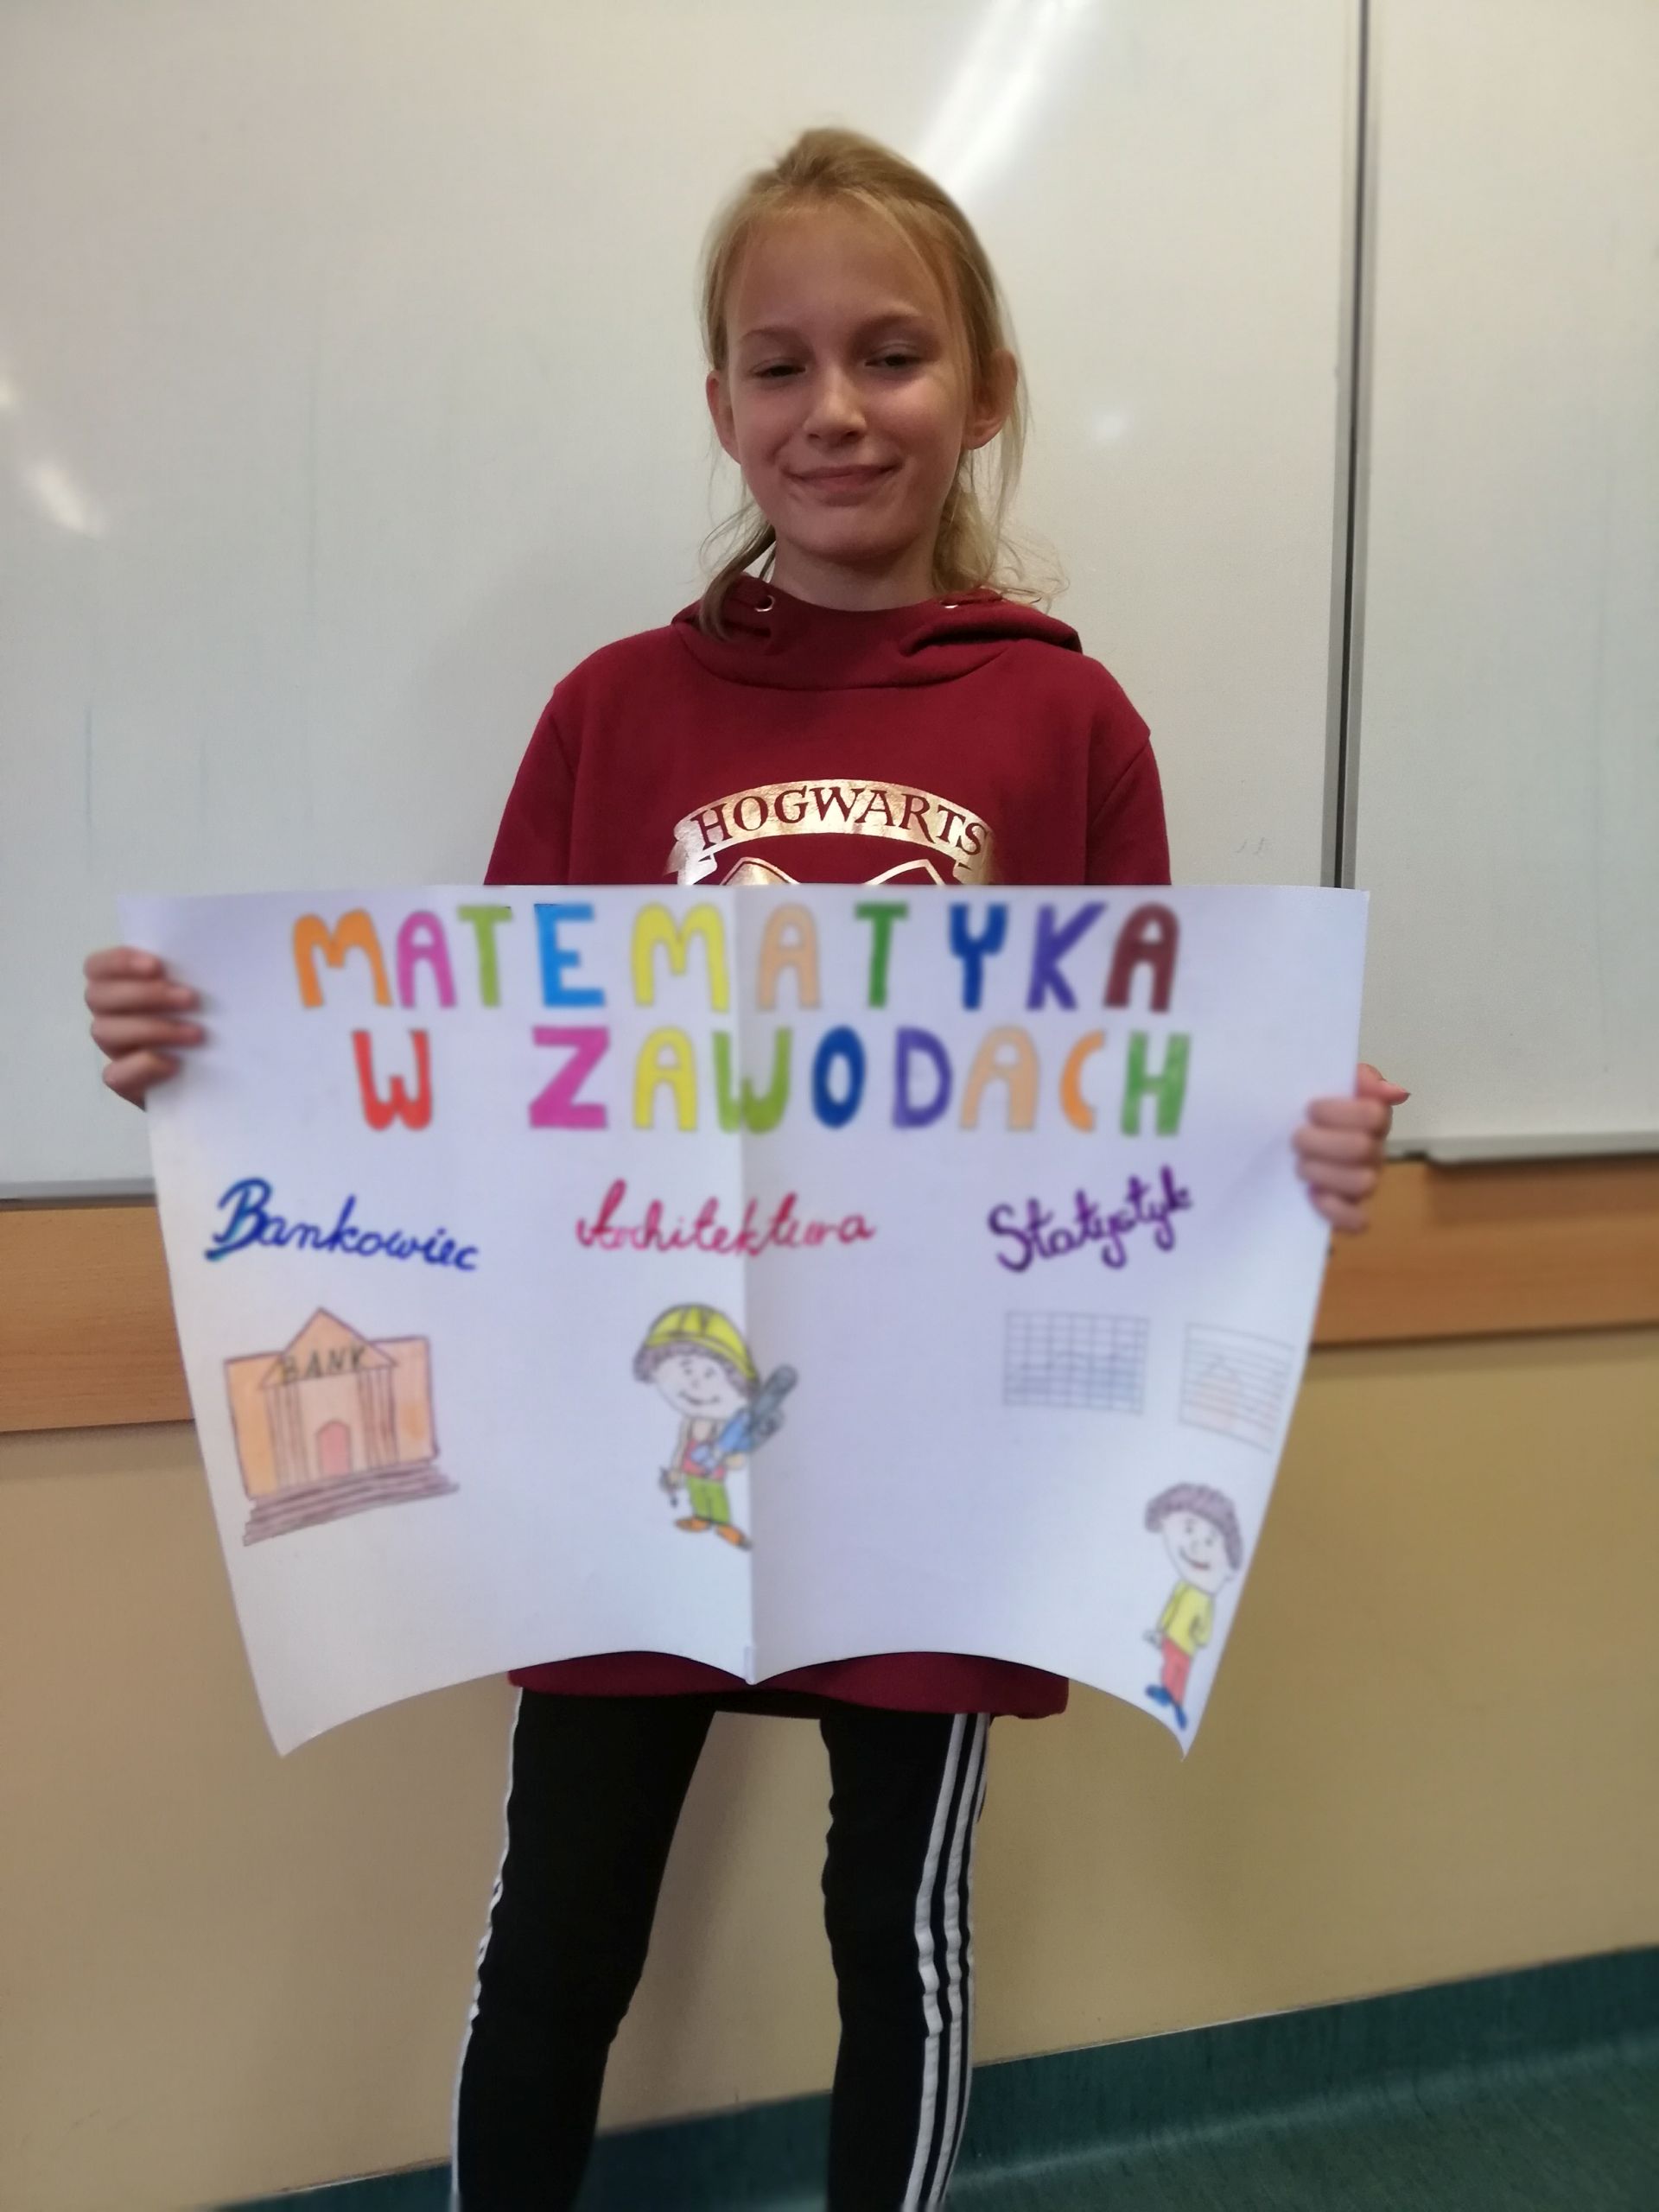 HOGWARTS
MATEMATYKA
W ZAWODACH
Bankowiec Architektura Statystyk
BANK